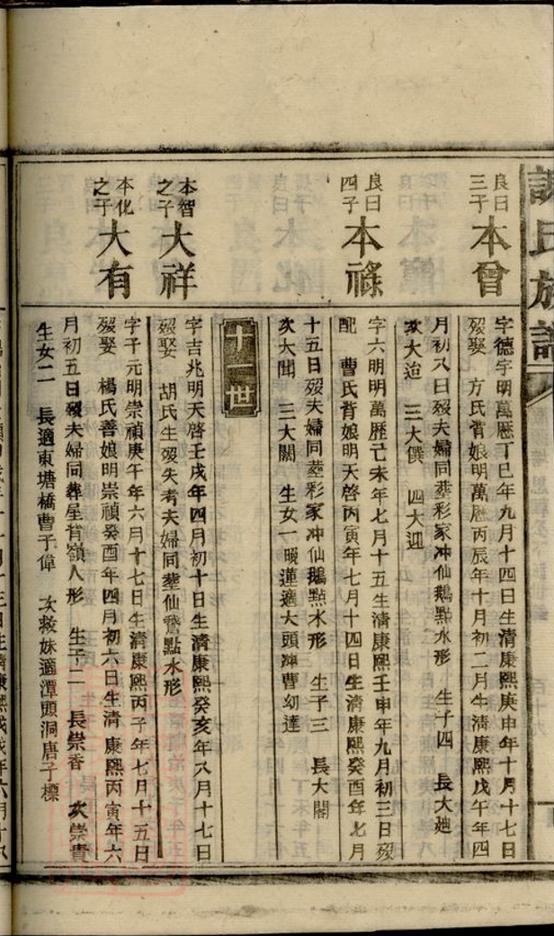 譚氏族譜
良曰三子
本曾
字德宇明萬歷丁巳年九月十四日生清康熙庚申年十月十七日
歿娶 方氏育娘明萬歷丙辰年十月初二月生清康熙戊午年四
月初八日歿夫婦同葬彩家冲仙鵝點水形 生子四 長大廸
次大治 三大僎 四大迎
良曰四子
本祿
字六明明萬歷己未年七月十五生清康熙壬申年九月初三日歿
配 曹氏育娘明天啓丙寅年七月十四日生清康熙癸酉年七月
十五日歿夫婦同葬彩家冲仙鵝點水形 生子三 長大閣
次大聞 三大閣 生女一 適大頭冲曹幼達
十一世
本智之子
大祥
字吉兆明天啓壬戌年四月初十日生清康熙癸亥年八月十七日
歿娶 胡氏生歿失考夫婦同葬仙鵝點水形
本化之子
大有
字千元明崇禎庚午年六月十七日生清康熙丙子年七月十五日
歿娶 楊氏善娘明崇禎癸酉年四月初六日生清康熙丙寅年六
月初五日歿夫婦同葬星背嶺人形 生子二 長崇香 次崇貴
生女二 長適東塘橋曹子偉 次救妹適潭頭洞唐子標